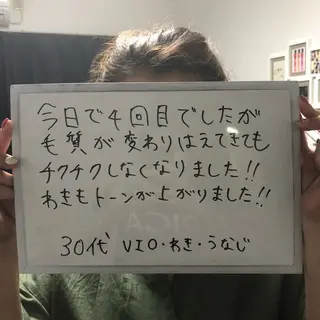 今日で4回目でしたが
毛質が変わりはえてきても
チクチクしなくなりました!!
わきもトーンが上がりました!!
30代 VIO・わき・うなじ